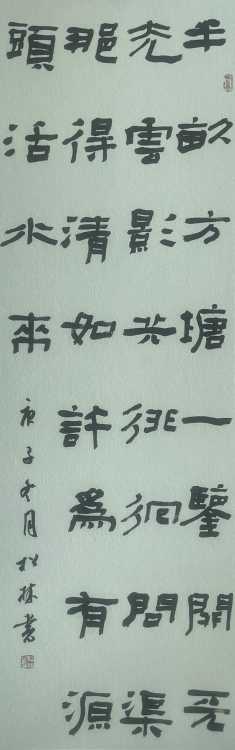 半畝方塘一鑒開天
光雲影共徘徊問渠
那得清如許為有源
頭活水來
庚子冬月松林書